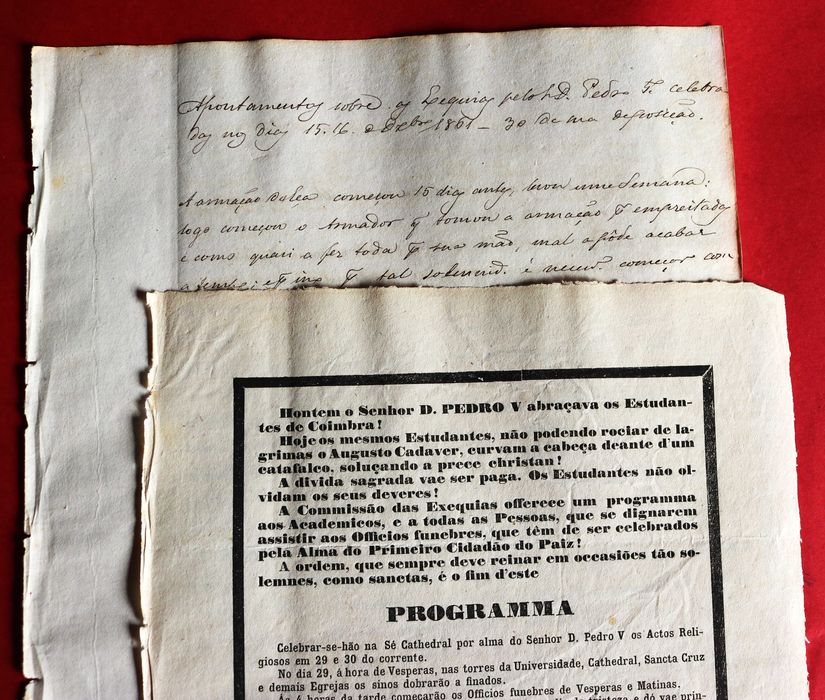 Apontamentos sobre as Exequias pelo S. D. Pedro 5º celebra
das nos dias 15. 16. e Dezbro 1861 — 30 de sua deposição.
A armação da Eça começou 15 dias antes, levou uma semana:
logo começou o Armador q tomou a armação p empreitada
e como quasi a fez toda p sua mão, mal a pôde acabar
a tempo: p tal começar com
Hontem o Senhor D. PEDRO V abraçava os Estudan-
tes de Coimbra!
Hoje os mesmos Estudantes, não podendo rociar de la-
grimas o Augusto Cadaver, curvam a cabeça deante d'um
catafalco, soluçando a prece christan!
A divida sagrada vae ser paga. Os Estudantes não ol-
vidam os seus deveres!
A Commissão das Exequias offerece um programma
aos Academicos, e a todas as Pessoas, que se dignarem
assistir aos Officios funebres, que têm de ser celebrados
pela Alma do Primeiro Cidadão do Paiz!
A ordem, que sempre deve reinar em occasiões tão so-
lemnes, como sanctas, é o fim d'este
PROGRAMMA
Celebrar-se-hão na Sé Cathedral por alma do Senhor D. Pedro V os Actos Reli-
giosos em 29 e 30 do corrente.
No dia 29, á hora de Vesperas, nas torres da Universidade, Cathedral, Sancta Cruz
e demais Egrejas os sinos dobrarão a finados.
Ás 4 horas da tarde começarão os Officios funebres de Vesperas e Matinas.
tristeza e dó vae prin-